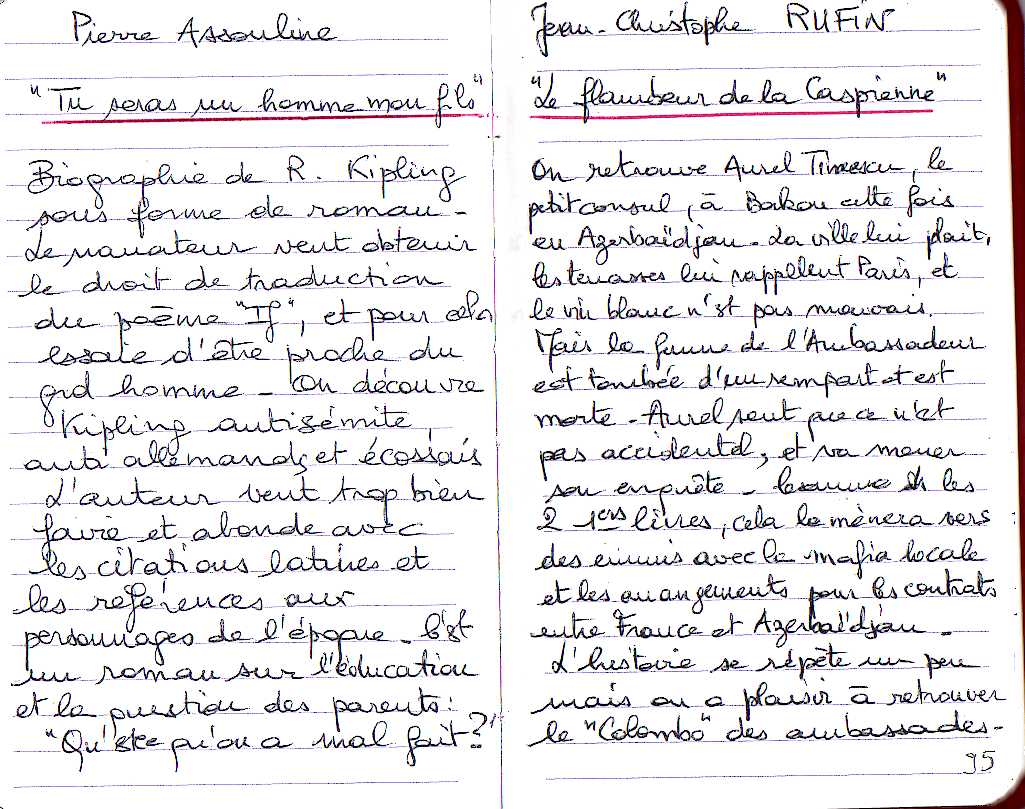 Pierre Assouline
"Tu seras un homme mon fils"
Biographie de R. Kipling
sous forme de roman -
Le narrateur veut obtenir
le droit de traduction
du poème "If", et pour cela
essaie d'être proche du
grd homme - On découvre
Kipling antisémite,
anti allemands et écossais
L'auteur veut trop bien
faire et abonde avec
les citations latines et
les références aux
personnages de l'époque - C'est
un roman sur l'éducation
et la question des parents :
"Qu'est ce qu'on a mal fait ?"
Jean-Christophe RUFIN
"Le flambeur de la Caspienne"
On retrouve Aurel Timescu, le
petit consul, à Bakou cette fois
en Azerbaïdjan - La ville lui plait,
les terrasses lui rappellent Paris, et
le vin blanc n'est pas mauvais.
Mais la femme de l'Ambassadeur
est tombée d'un rempart et est
morte - Aurel sent que ce n'est
pas accidentel, et va mener
son enquête - Comme les
2 1ers livres, cela le mènera vers
des ennuis avec la mafia locale
et les arrangements pour les contrats
entre France et Azerbaïdjan -
L'histoire se répète un peu
mais on a plaisir à retrouver
le "Colombo" des ambassades -
95